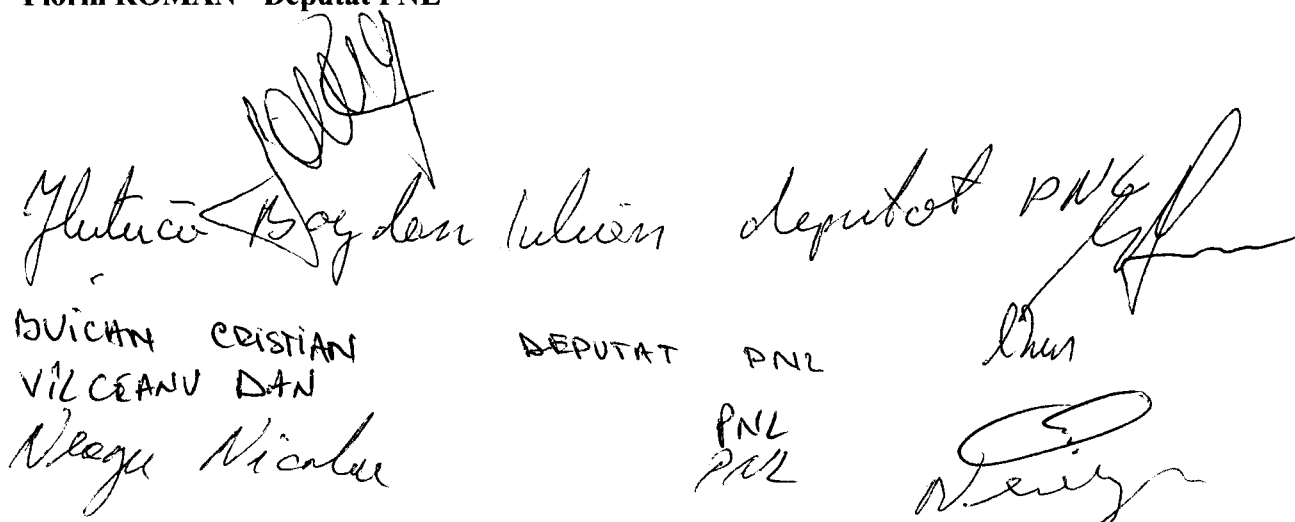 Florin ROMAN - Deputat PNL
Huţucă Bogdan Iulian deputat PNL
BUICAN CRISTIAN DEPUTAT PNL
VÎLCEANU DAN PNL
Neagu Nicolae PNL